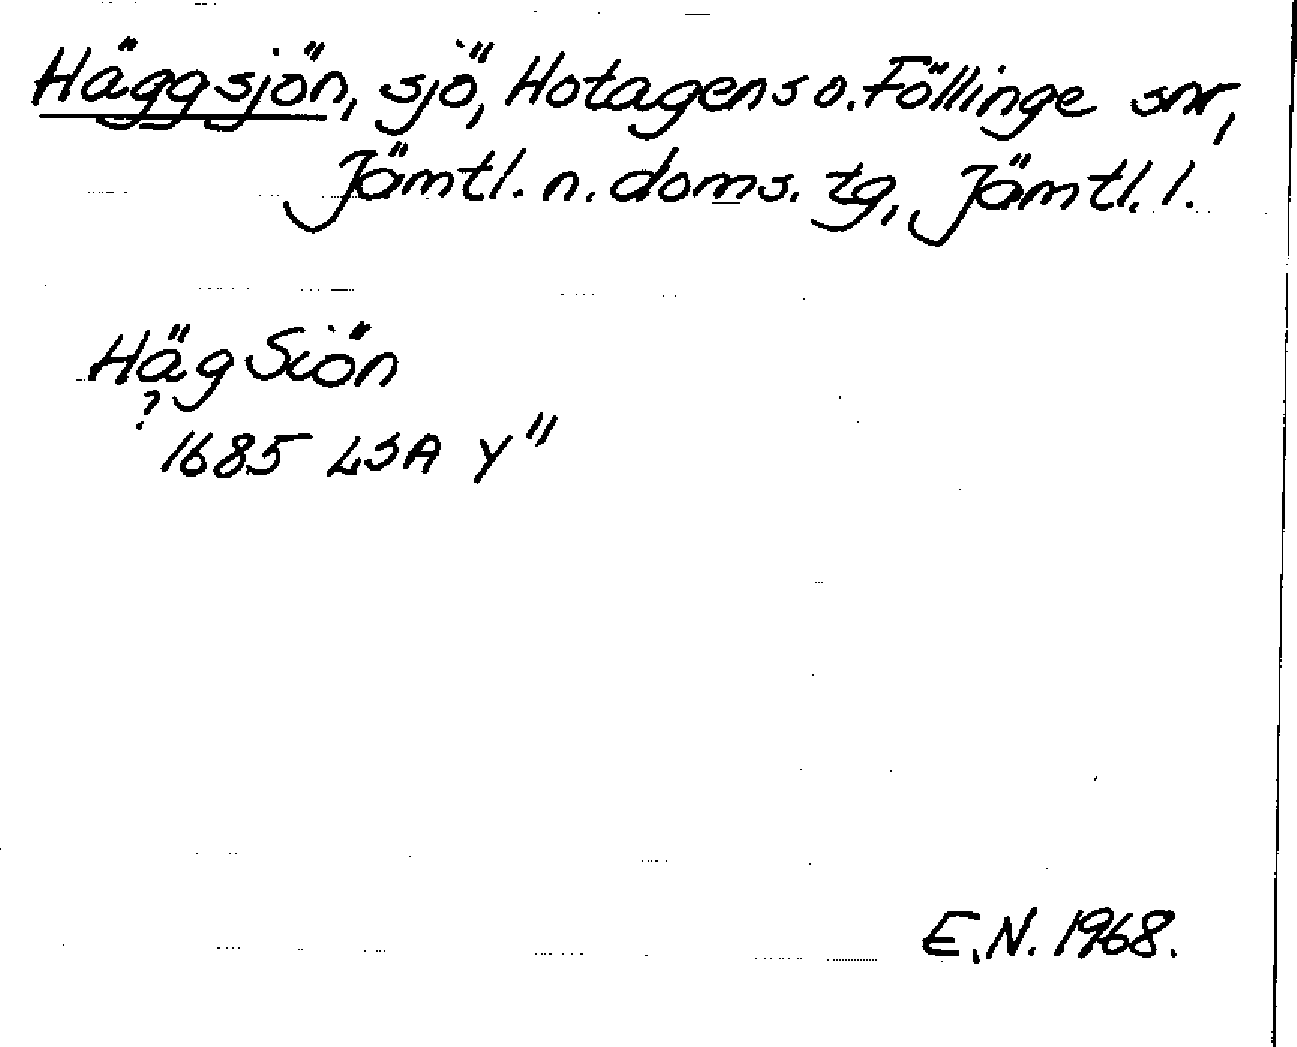 Häggsjön, sjö, Hotagens o. Föllinge snr,
Jämtl. n. doms. tg, Jämtl. l.
Häg Siön
?
1685 LSA Y"
E.N. 1968.